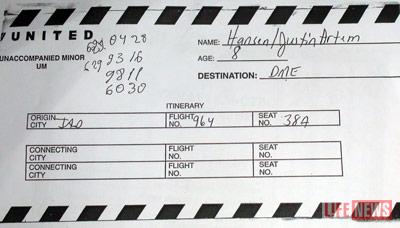 UNITED
UNACCOMPANIED MINOR
UM
0428
629 2316
9811
6030
NAME: Hansen/Justin Artem
AGE: 8
DESTINATION: DME
ITINERARY
ORIGIN CITY IAD FLIGHT NO. 964 SEAT NO. 38A
CONNECTING CITY FLIGHT NO. SEAT NO.
CONNECTING CITY FLIGHT NO. SEAT NO.
LIFE NEWS